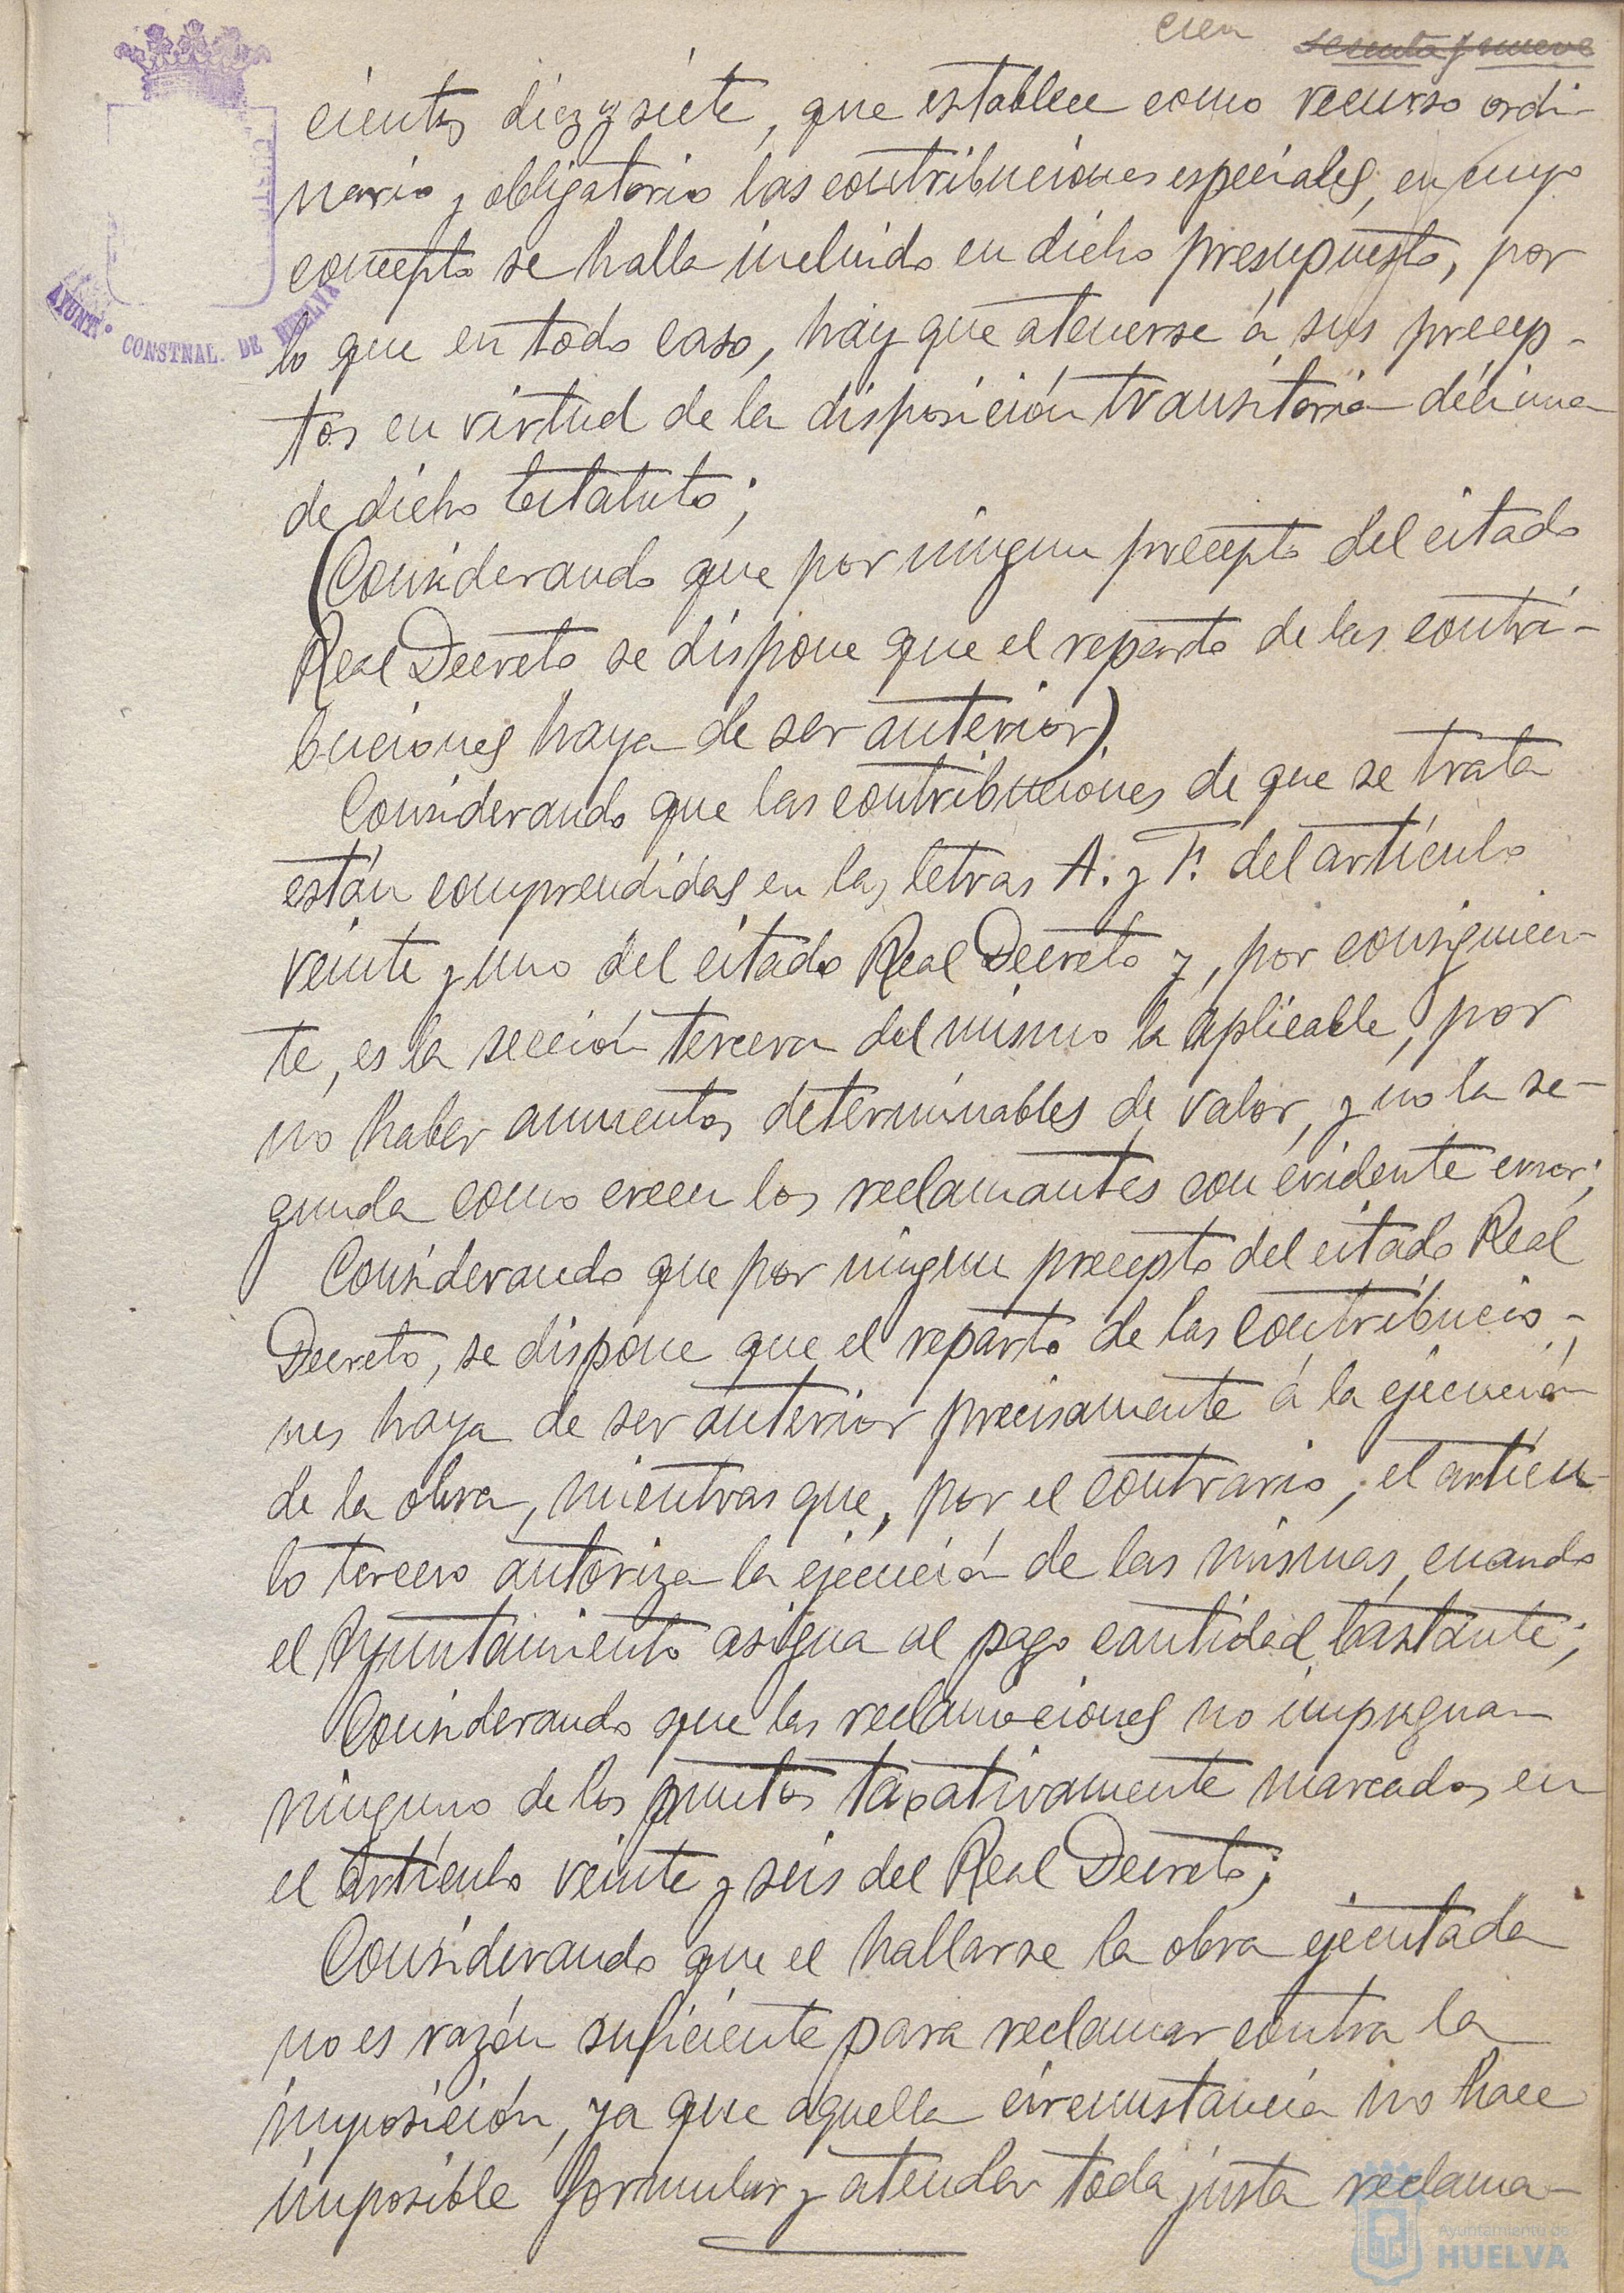 cien sesenta y nueve
cientos diez y siete, que establece como recurso ordi-
nario y obligatorio las contribuciones especiales, en cuyo
concepto se halla incluido en dicho presupuesto, por
lo que en todo caso, hay que atenerse á sus precep-
tos en virtud de la disposición transitoria décima
de dicho Estatuto;
(Considerando que por ningun precepto del citado
Real Decreto se dispone que el reparto de las contri-
buciones haya de ser anterior).
Considerando que las contribuciones de que se trata
están comprendidas en las letras A. y F. del artículo
veinte y uno del citado Real Decreto y, por consiguien-
te, es la sección tercera del mismo la aplicable, por
no haber aumentos determinables de valor, y no la se-
gunda como creen los reclamantes con evidente error;
Considerando que por ningun precepto del citado Real
Decreto, se dispone que el reparto de las contribucio-
nes haya de ser anterior precisamente á la ejecución
de la obra, mientras que, por el contrario, el artícu-
lo tercero autoriza la ejecución de las mismas, cuando
el Ayuntamiento asigna al pago cantidad bastante;
Considerando que las reclamaciones no impugnan
ninguno de los puntos taxativamente marcados en
el artículo veinte y seis del Real Decreto;
Considerando que el hallarse la obra ejecutada
no es razón suficiente para reclamar contra la
imposición, ya que aquella circunstancia no hace
imposible formular y atender toda justa reclama-
AYUNT.º CONSTNAL. DE HUELVA
Ayuntamiento de
HUELVA